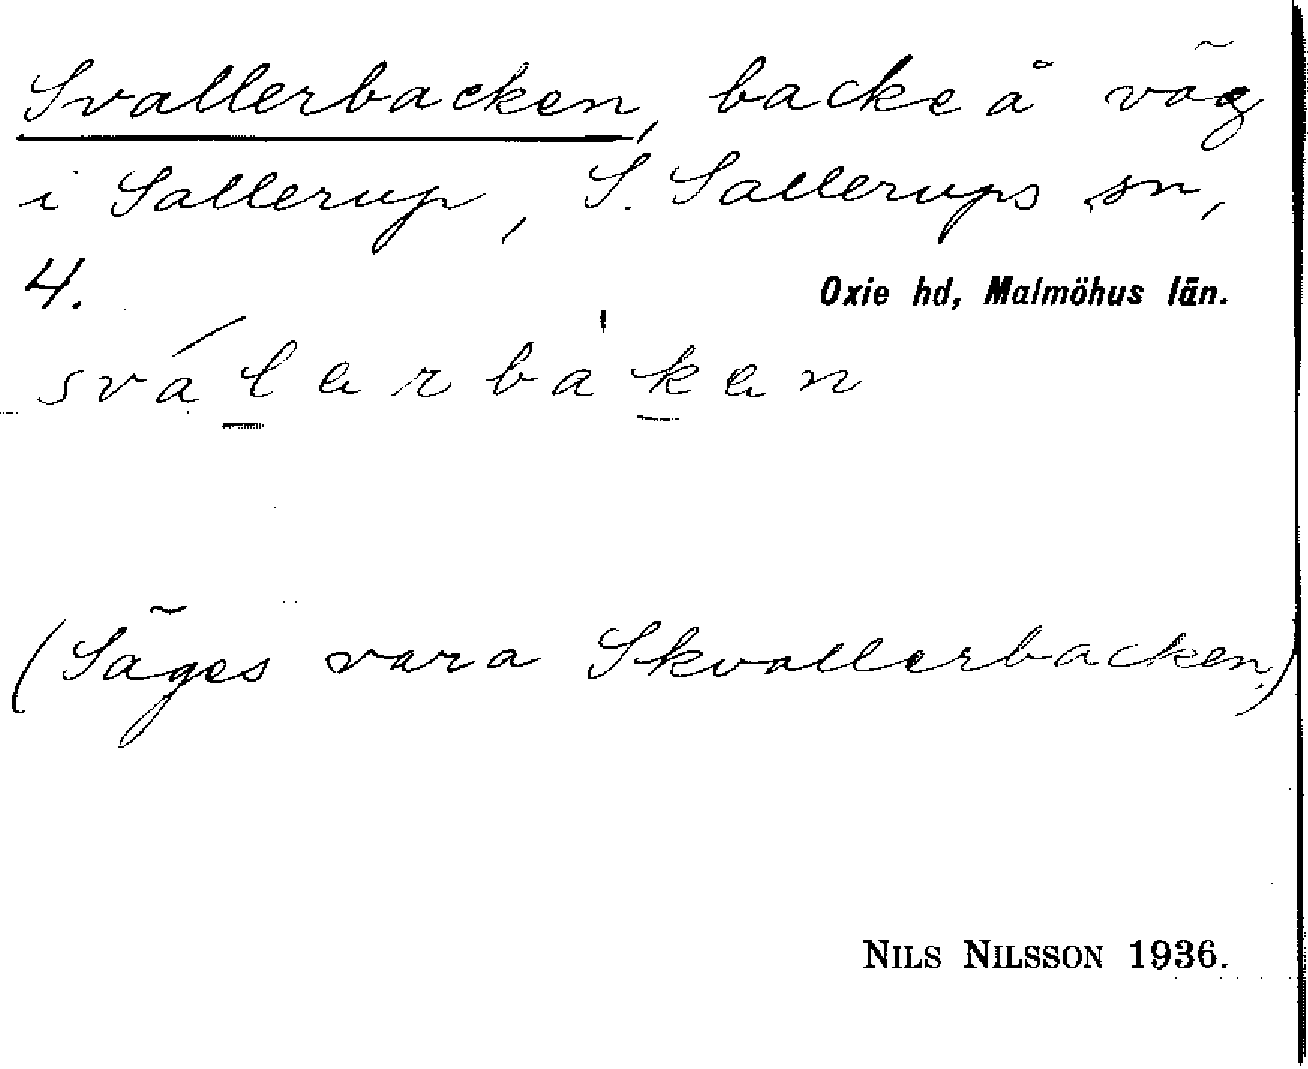 Svallerbacken, backe å väg
i Sallerup, S. Sallerups sn,
4.
Oxie hd, Malmöhus län.
svá l̲ ɐ r b a̍ k̲ ɐ n
(Säges vara Skvallerbacken.)
NILS NILSSON 1936.